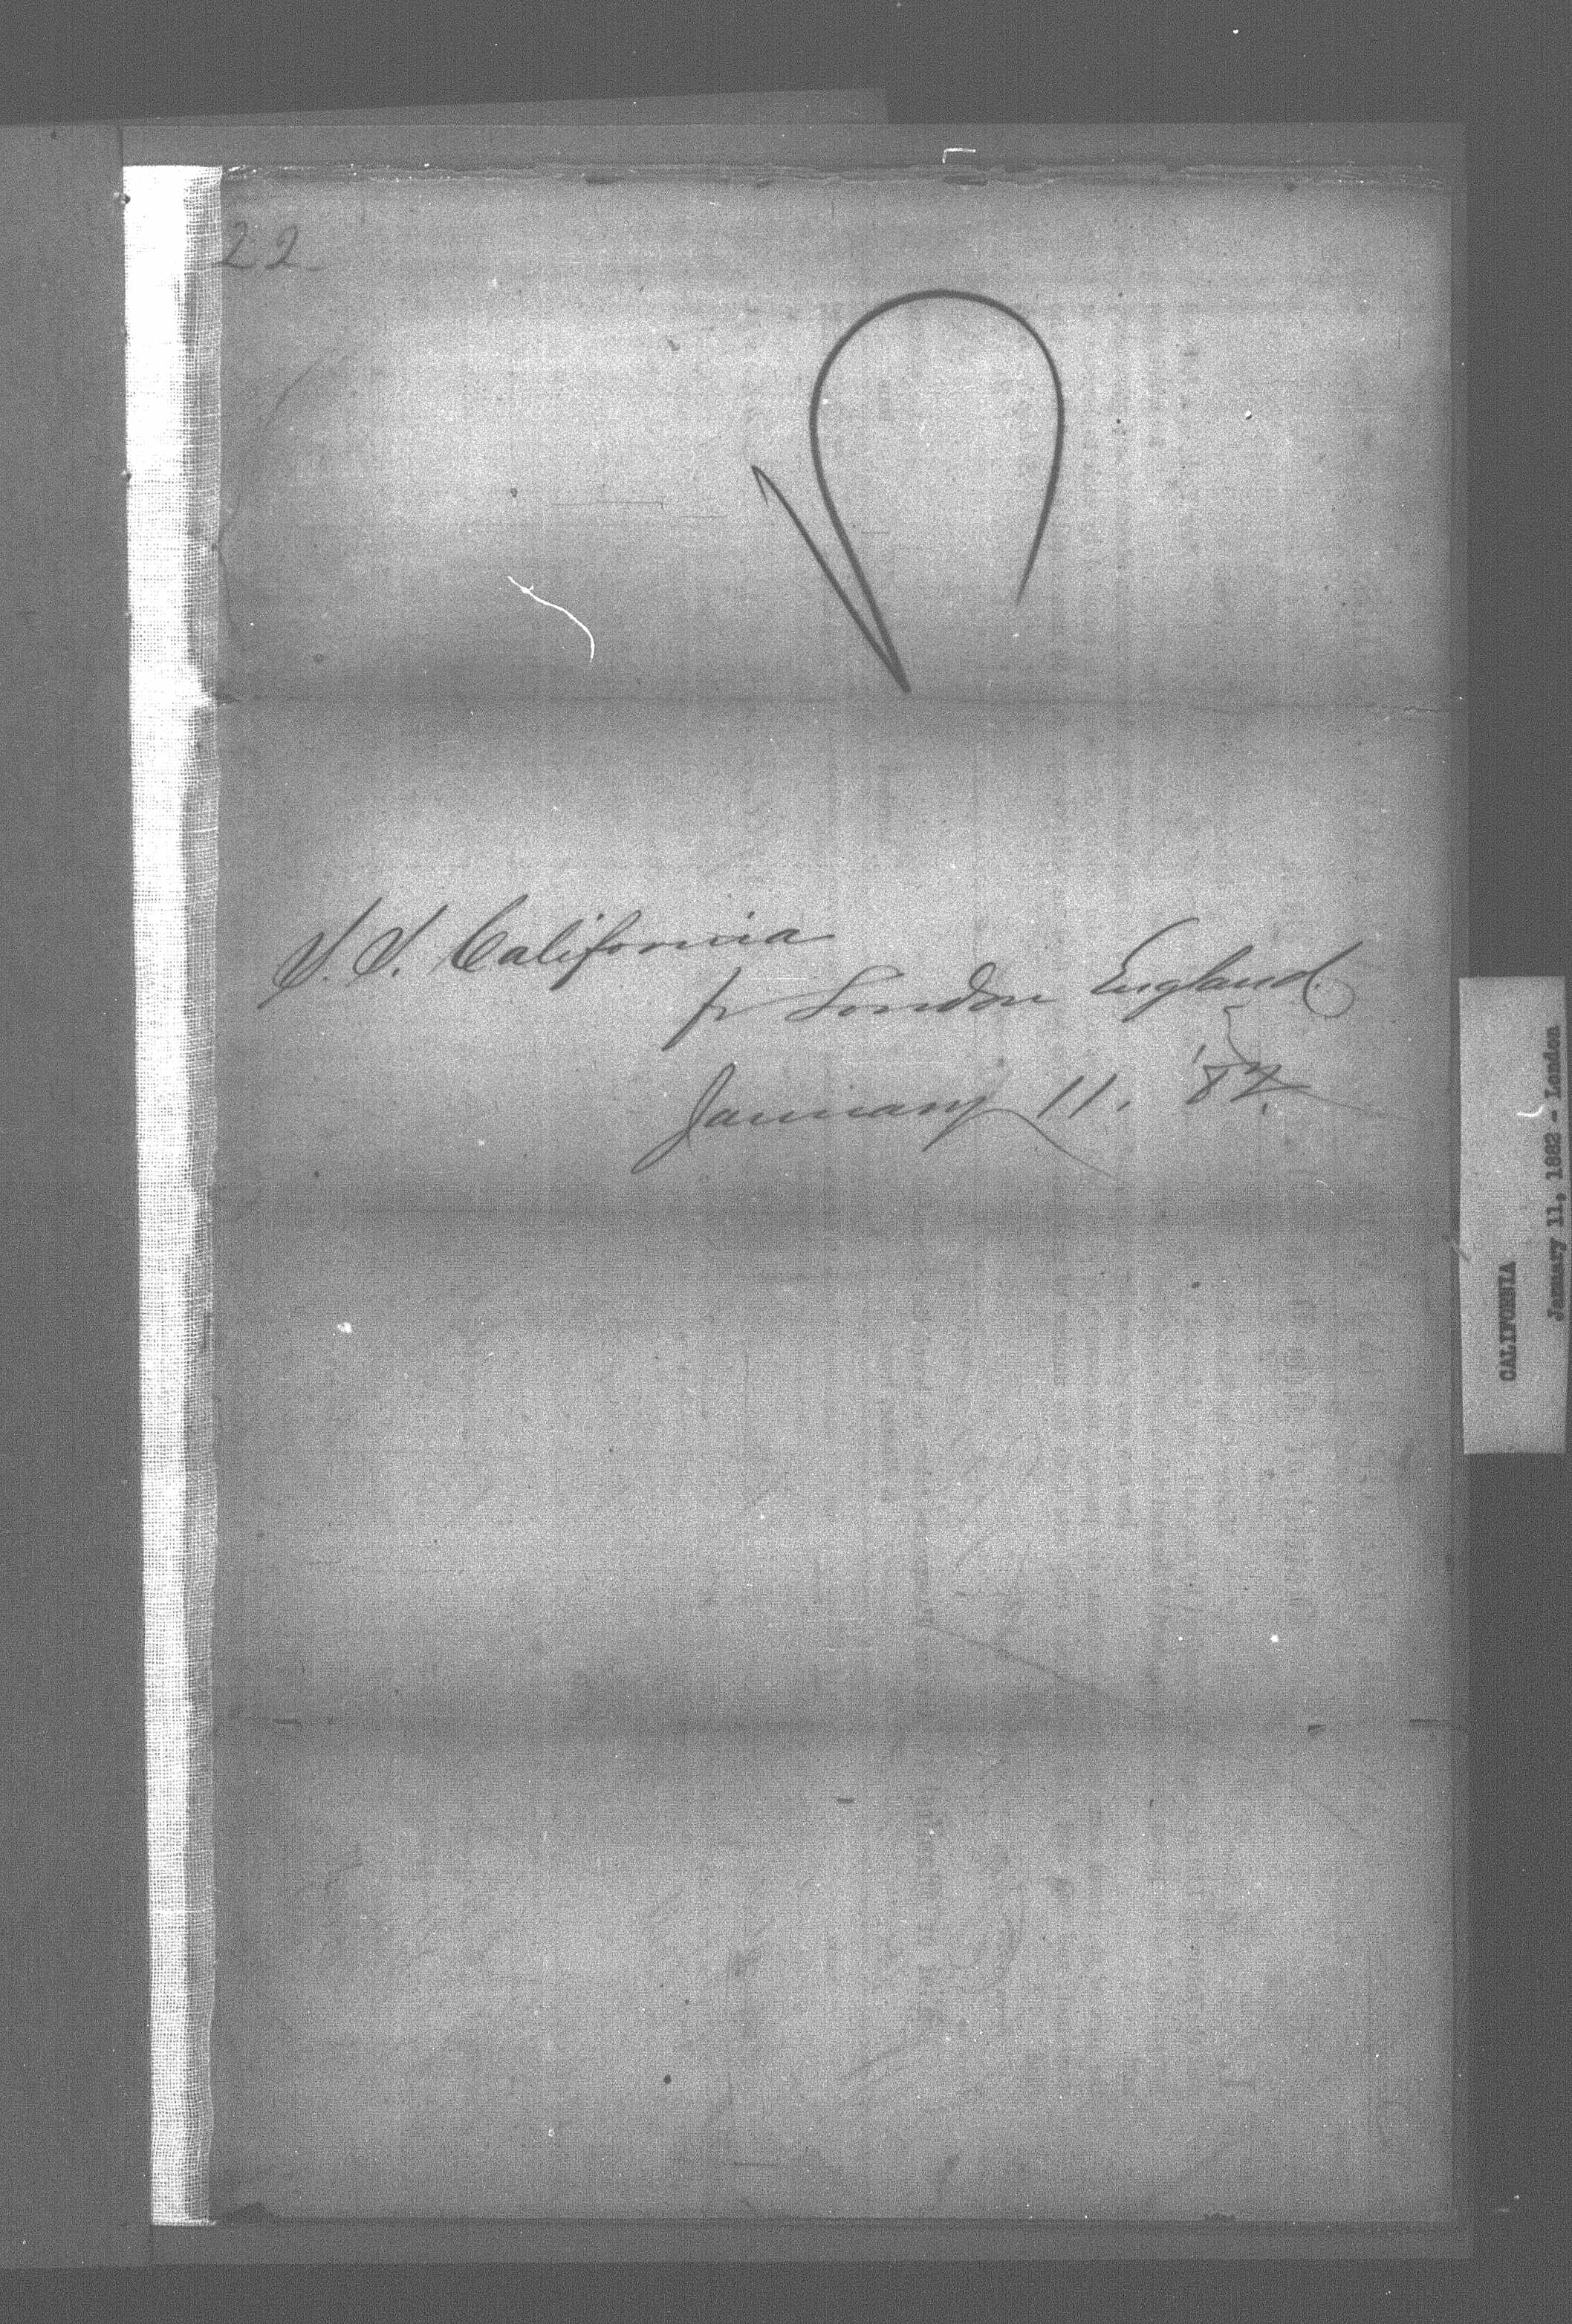 22
S. S. California
fr London England.
January 11, '82.
CALIFORNIA
January 11, 1882 - London